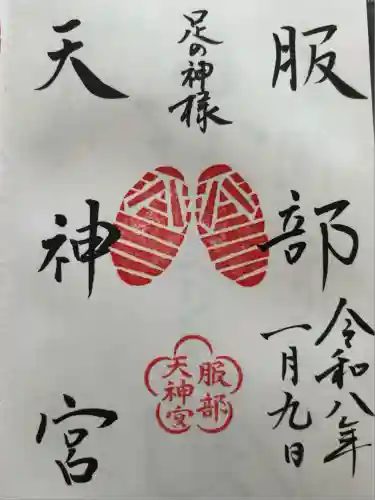 服部
足の神様
天神宮
令和八年
一月九日
服部
天神宮